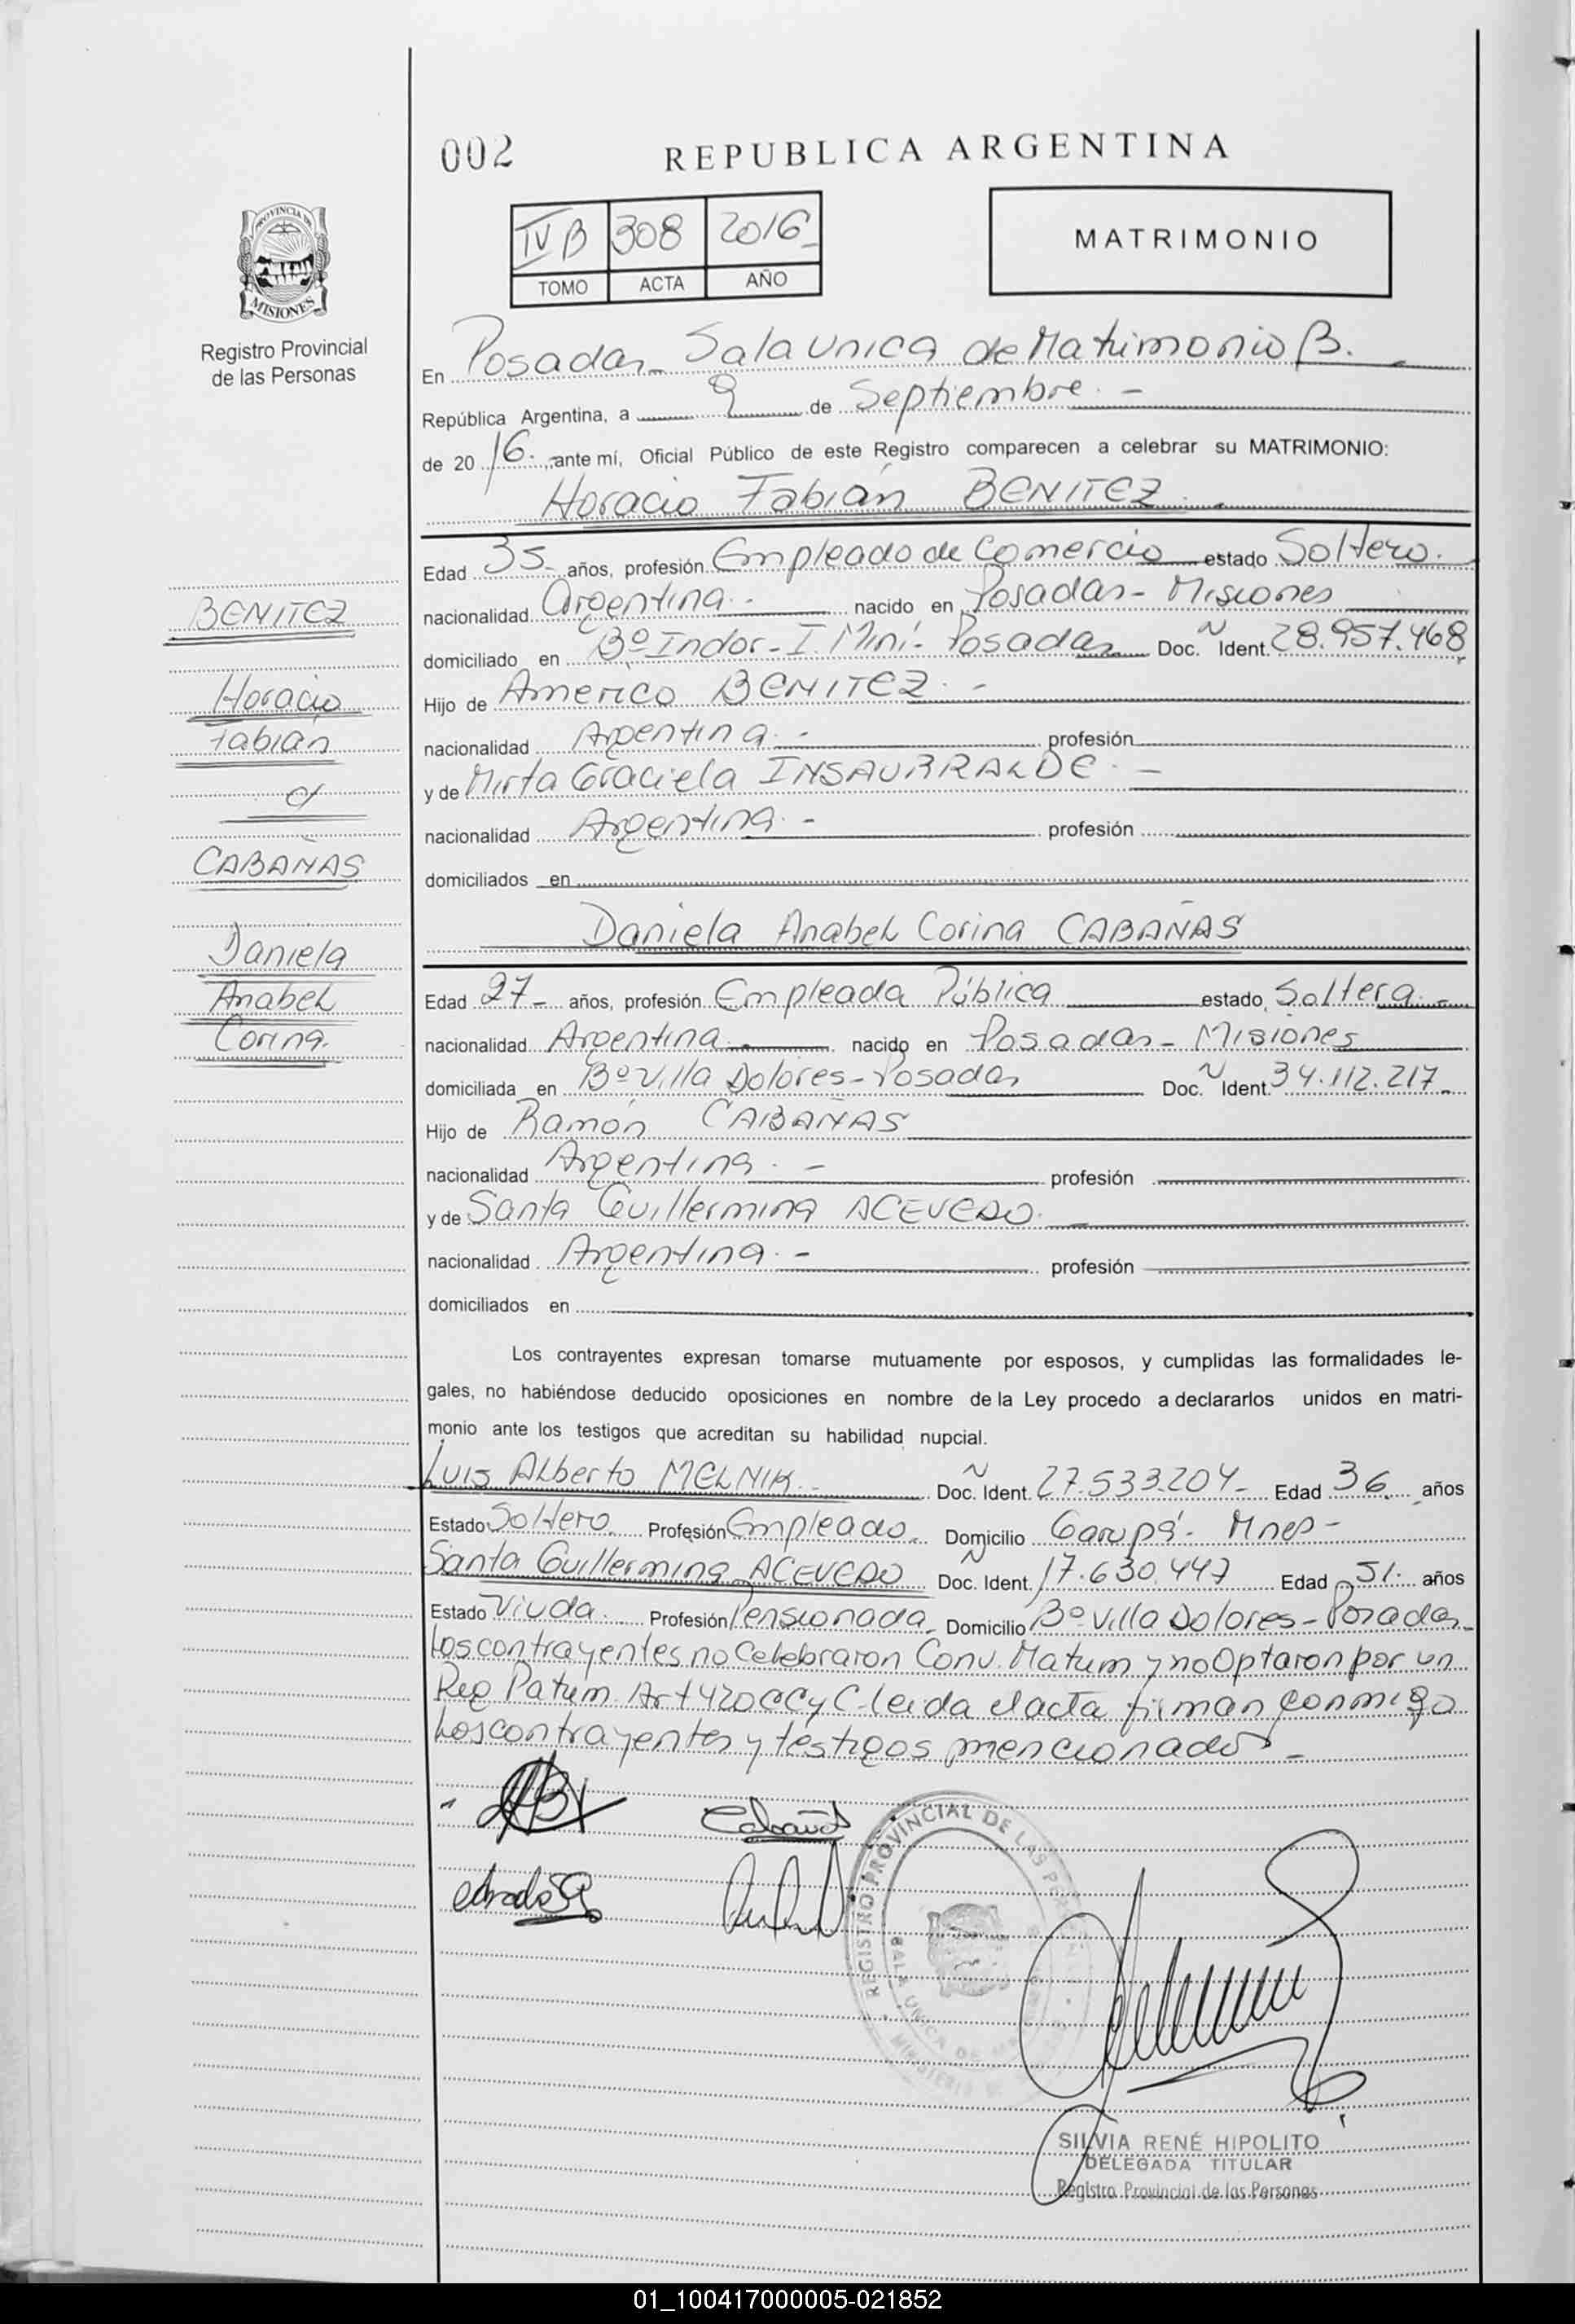 002
REPUBLICA ARGENTINA
PROVINCIA DE
MISIONES
Registro Provincial
de las Personas
IV B 308 2016
TOMO ACTA AÑO
MATRIMONIO
En Posadas Sala Unica de Matrimonio B.
República Argentina, a 9 de Septiembre. -
de 2016. ,ante mí, Oficial Público de este Registro comparecen a celebrar su MATRIMONIO:
Horacio Fabián BENITEZ.
Edad 35 años, profesión Empleado de Comercio estado Soltero.
nacionalidad Argentina. - nacido en Posadas - Misiones
domiciliado en Bº Indor - I. Miní - Posadas Doc. Ñ Ident. 28.957.468
Hijo de Americo BENITEZ. -
nacionalidad Argentina. - profesión
y de Mirta Graciela INSAURRALDE. -
nacionalidad Argentina. - profesión
domiciliados en
BENITEZ
Horacio
Fabián
c/
CABAÑAS
Daniela
Anabel
Corina.
Daniela Anabel Corina CABAÑAS
Edad 27 - años, profesión Empleada Pública estado Soltera. -
nacionalidad Argentina. nacido en Posadas - Misiones
domiciliada en Bº Villa Dolores - Posadas Doc. Ñ Ident. 34.112.217
Hijo de Ramón CABAÑAS
nacionalidad Argentina. - profesión
y de Santa Guillermina ACEVEDO. -
nacionalidad Argentina. - profesión
domiciliados en
Los contrayentes expresan tomarse mutuamente por esposos, y cumplidas las formalidades le-
gales, no habiéndose deducido oposiciones en nombre de la Ley procedo a declararlos unidos en matri-
monio ante los testigos que acreditan su habilidad nupcial.
Luis Alberto MELNIK. - Doc. Ñ Ident. 27.533.204 - Edad 36 años
Estado Soltero. Profesión Empleado. Domicilio Garupá - Mnes -
Santa Guillermina ACEVEDO Doc. Ñ Ident. 17.630.447 Edad 51. años
Estado Viuda. Profesión Pensionada. Domicilio Bº Villa Dolores - Posadas
Los contrayentes no Celebraron Conv. Matrim y no Optaron por un
Reg Patrim Art 420 CCyC leida el acta firman conmigo
Los contrayentes y testigos mencionados -
REGISTRO PROVINCIAL DE LAS PERSONAS
SALA UNICA DE
SILVIA RENÉ HIPOLITO
DELEGADA TITULAR
Registro Provincial de las Personas
01_100417000005-021852